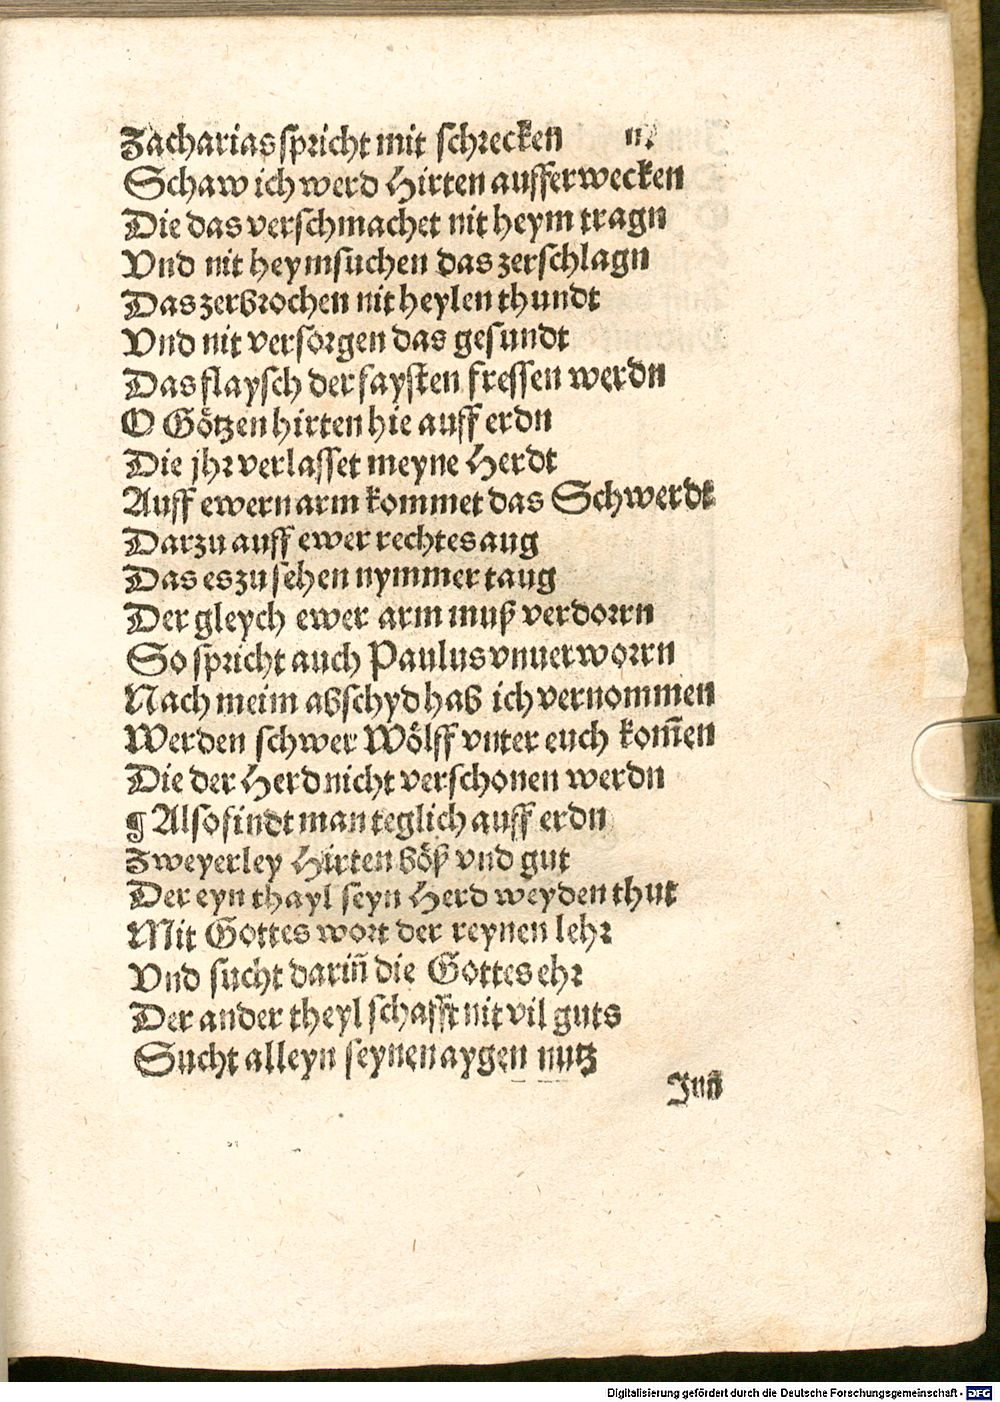 Zacharias spricht mit schrecken
Schaw ich werd Hirten aufferwecken
Die das verschmachet nit heym tragn
Vnd nit heymsuchen das zerschlagn
Das zerbrochen nit heylen thundt
Vnd nit versorgen das gesundt
Das flaysch der faysten fressen werdn
O Götzen hirten hie auff erdn
Die jhr verlasset meyne Herdt
Auff ewern arm kommet das Schwerdt
Darzu auff ewer rechtes aug
Das es zu sehen nymmer taug
Der gleych ewer arm muß verdorrn
So spricht auch Paulus vnuerworrn
Nach meim abschyd hab ich vernommen
Werden schwer Wölff vnter euch kom̄en
Die der Herd nicht verschonen werdn
¶ Also findt man teglich auff erdn
Zweyerley Hirten böß vnd gut
Der eyn thayl seyn Herd weyden thut
Mit Gottes wort der reynen lehr
Vnd sucht darin̄ die Gottes ehr
Der ander theyl schafft nit vil guts
Sucht alleyn seynen aygen nutz
Jnn̄
Digitalisierung gefördert durch die Deutsche Forschungsgemeinschaft - DFG